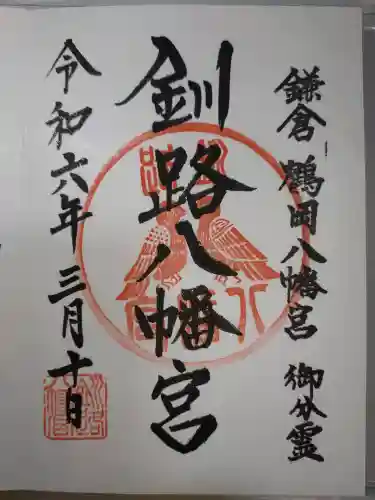 鎌倉 鶴岡八幡宮 御分霊
釧路八幡宮
令和六年 三月十日